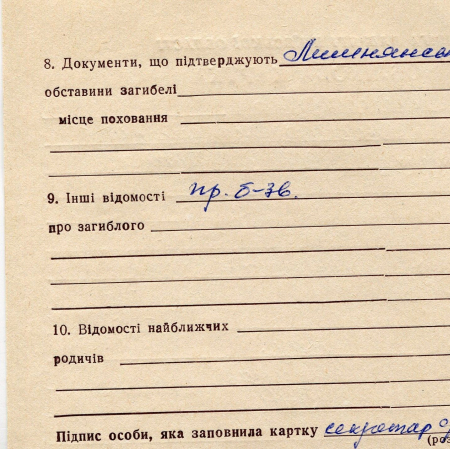 8. Документи, що підтверджують
обставини загибелі
місце поховання
9. Інші відомості пр. б-зв.
про загиблого
10. Відомості найближчих
родичів
Підпис особи, яка заповнила картку секретар